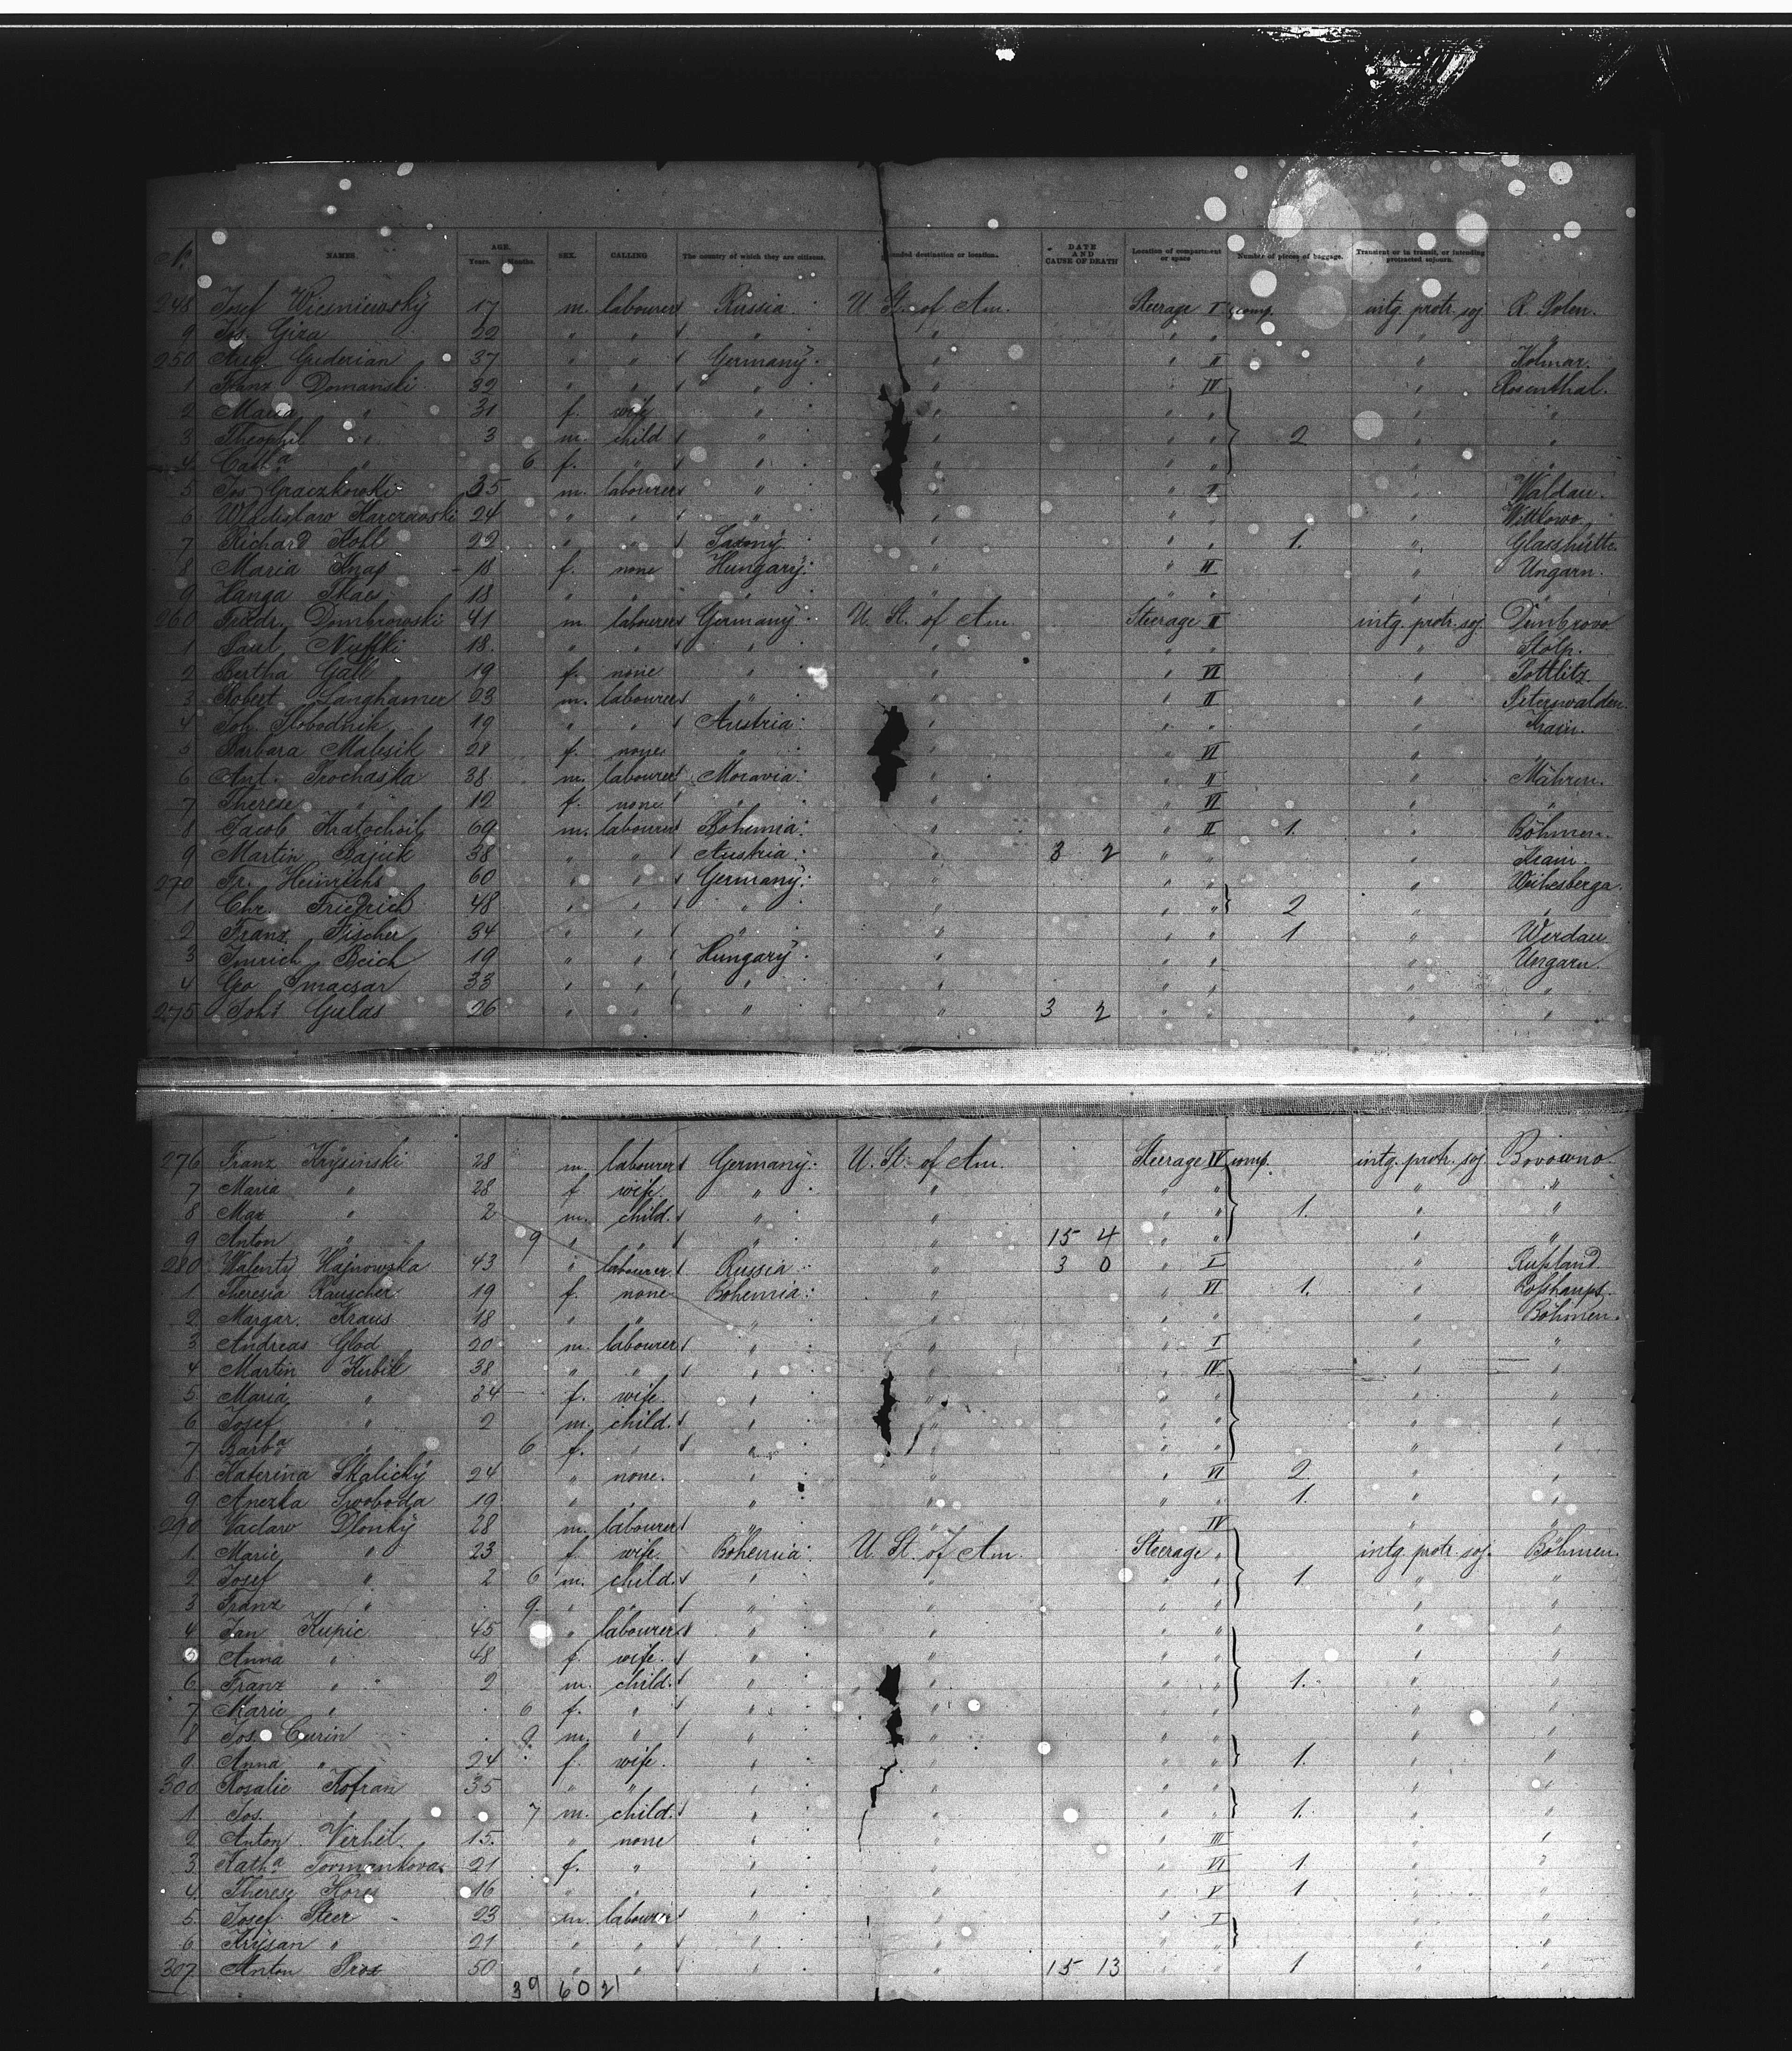 No. NAMES. AGE. Years. Months. SEX. CALLING The country of which they are citizens. Intended destination or location. DATE AND CAUSE OF DEATH Location of compartment or space Number of pieces of baggage. Transient or in transit, or intending protracted sojourn.
248 Josef Wiesniewsky 17 m. labourer Russia U. St. of Am. Steerage I comp. intg. protr. soj. R. Polen.
9 Js. Gira 22 " " " " " " " "
250 Aug. Guderian 37 " " Germany " " II " Kolmar.
1 Franz Domanski 32 " " " " " IV " Rosenthal.
2 Maria " 31 f. wife " " " " " "
3 Theophil " 3 m. child " " " " 2 " "
4 Cath.a " 6 f. " " " " " " "
5 Jos Graczkowski 35 m. labourer " " " II " Waldau.
6 Wladislaw Karczewski 24 " " " " " " " Wittkowo
7 Richard Kohl 22 " " Saxony " " " 1. " Glasshütte
8 Maria Knap 18 f. none Hungary " " II " Ungarn.
9 Hanga Tkacs 18 " " " " " " " "
260 Friedr. Dombrowski 41 m. labourer Germany U. St. of Am. Steerage II intg. protr. soj. Dimbrovo
1 Paul Nuffki 18. " " " " " " " Stolp.
2 Bertha Gall 19 f. none " " " VI " Pottlitz
3 Robert Langhamer 63 m. labourer " " " II " Peterswalden
4 Joh. Slobodnik 19 " " Austria " " " " Krain.
5 Barbara Malesik 28 f. none " " " VI " "
6 Ant. Prochaska 38 m. labourer Moravia " " II " Mähren.
7 Therese " 12 f. none " " " VI " "
8 Jacob Kratochvil 69 m. labourer Bohemia " " II 1. " Böhmen.
9 Martin Bajuk 38 " " Austria " 3 2 " " " Krain.
270 Fr. Heinrichs 60 " " Germany " " " " Weihesberga.
1 Chr. Friedrich 48 " " " " " " 2 " "
2 Franz Fischer 34 " " " " " " 1 " Werdau
3 Imrich Beich 19 " " Hungary " " " " Ungarn.
4 Geo Smacsar 33 " " " " " " " "
275 Johs Gulas 26 " " " " 3 2 " " " "
276 Franz Krysinski 28 m. labourer Germany U. St. of Am. Steerage IV comp. intg. protr. soj. Bovowno
7 Maria " 28 f. wife. " " " " " "
8 Max " 2 m. child. " " " " 1. " "
9 Anton " 9 " " " " 15 4 " " " "
280 Walenty Hajnowska 43 " labourer Russia " 3 0 " I " Rußland
1 Theresia Rauscher 19 f. none Bohemia " " VI 1. " Roßhaupt.
2 Margar. Kraus 18 " " " " " " " Böhmen.
3 Andreas Glod 20 m. labourer " " " I " "
4 Martin Kubik 38 " " " " " IV " "
5 Maria " 34 f. wife " " " " " "
6 Josef " 2 m. child. " " " " " "
7 Barb.a " 6 f. " " " " " " "
8 Katerina Skalicky 24 " none. " " " VI 2. " "
9 Anezka Swoboda 19 " " " " " " 1. " "
290 Vaclaw Dlonky 28 m. labourer " " " IV " "
1 Marie " 23 f. wife Bohemia U. St. of Am. Steerage " intg. protr. soj. Böhmen.
2 Josef " 2 6 m. child. " " " " 1 " "
3 Franz " 9. " " " " " " " "
4 Jan Kupic 45 " labourer " " " " " "
5 Anna " 48 f. wife. " " " " " "
6 Franz " 2 m. child. " " " " 1. " "
7 Marie " 6 f. " " " " " " "
8 Jos. Curin 9. m. " " " " " " "
9 Anna " 24 f. wife. " " " " 1. " "
300 Rosalie Kofran 35 " " " " " " " "
1 Jos. 7 m. child. " " " " 1. " "
2 Anton Verhil. 15. " none " " " III " "
3 Kath.a Tormankova 21 f. " " " " VI 1 " "
4 Therese 16 " " " " " V 1 " "
5 Josef Steer 23 m. labourer " " " I " "
6 Krysan " 21 " " " " " " " "
307 Anton Prox 50 " " " " 15 13 " " 1 " "
39 60 21